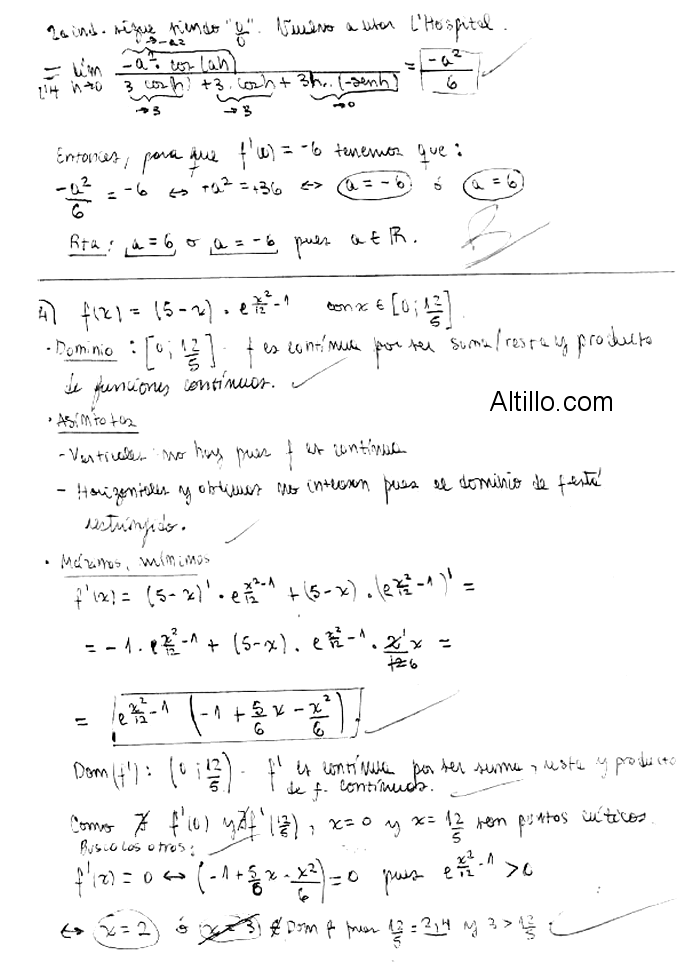 2a ind. sigue siendo "0/0". Vuelvo a usar L'Hospital.
→ -a²
= lím -a². cos(ah) / 3 cos(h) + 3. cosh + 3h.(-senh) = -a²/6
L'H h→0
→3 →3 →0
Entonces, para que f'(0) = -6 tenemos que:
-a²/6 = -6 ⇔ +a² = +36 ⇔ a = -6 ó a = 6
Rta: a = 6 o a = -6 pues a ∈ ℝ.
4) f(x) = (5-x) · e^(x²/12 - 1) con x ∈ [0; 12/5].
· Dominio: [0; 12/5]. f es contínua por ser suma/resta y producto
de funciones contínuas.
Altillo.com
· Asíntotas
- Verticales: no hay pues f es contínua
- Horizontales y oblicuas no interesan pues el dominio de f está
restringido.
· Máximos, mínimos
f'(x) = (5-x)' · e^(x²/12 - 1) + (5-x) · (e^(x²/12 - 1))' =
= -1 · e^(x²/12 - 1) + (5-x) · e^(x²/12 - 1) · 2x/12 6 =
= e^(x²/12 - 1) (-1 + 5/6 x - x²/6).
Dom(f'): (0; 12/5). f' es contínua por ser suma, resta y producto
de f. contínuas.
Como ∄ f'(0) y ∄ f'(12/5), x=0 y x=12/5 son puntos críticos.
Busco los otros:
f'(x) = 0 ⇔ (-1 + 5/6 x - x²/6) = 0 pues e^(x²/12 - 1) > 0
⇔ x = 2 ó x = 3 ∉ Dom f pues 12/5 = 2,4 y 3 > 12/5.